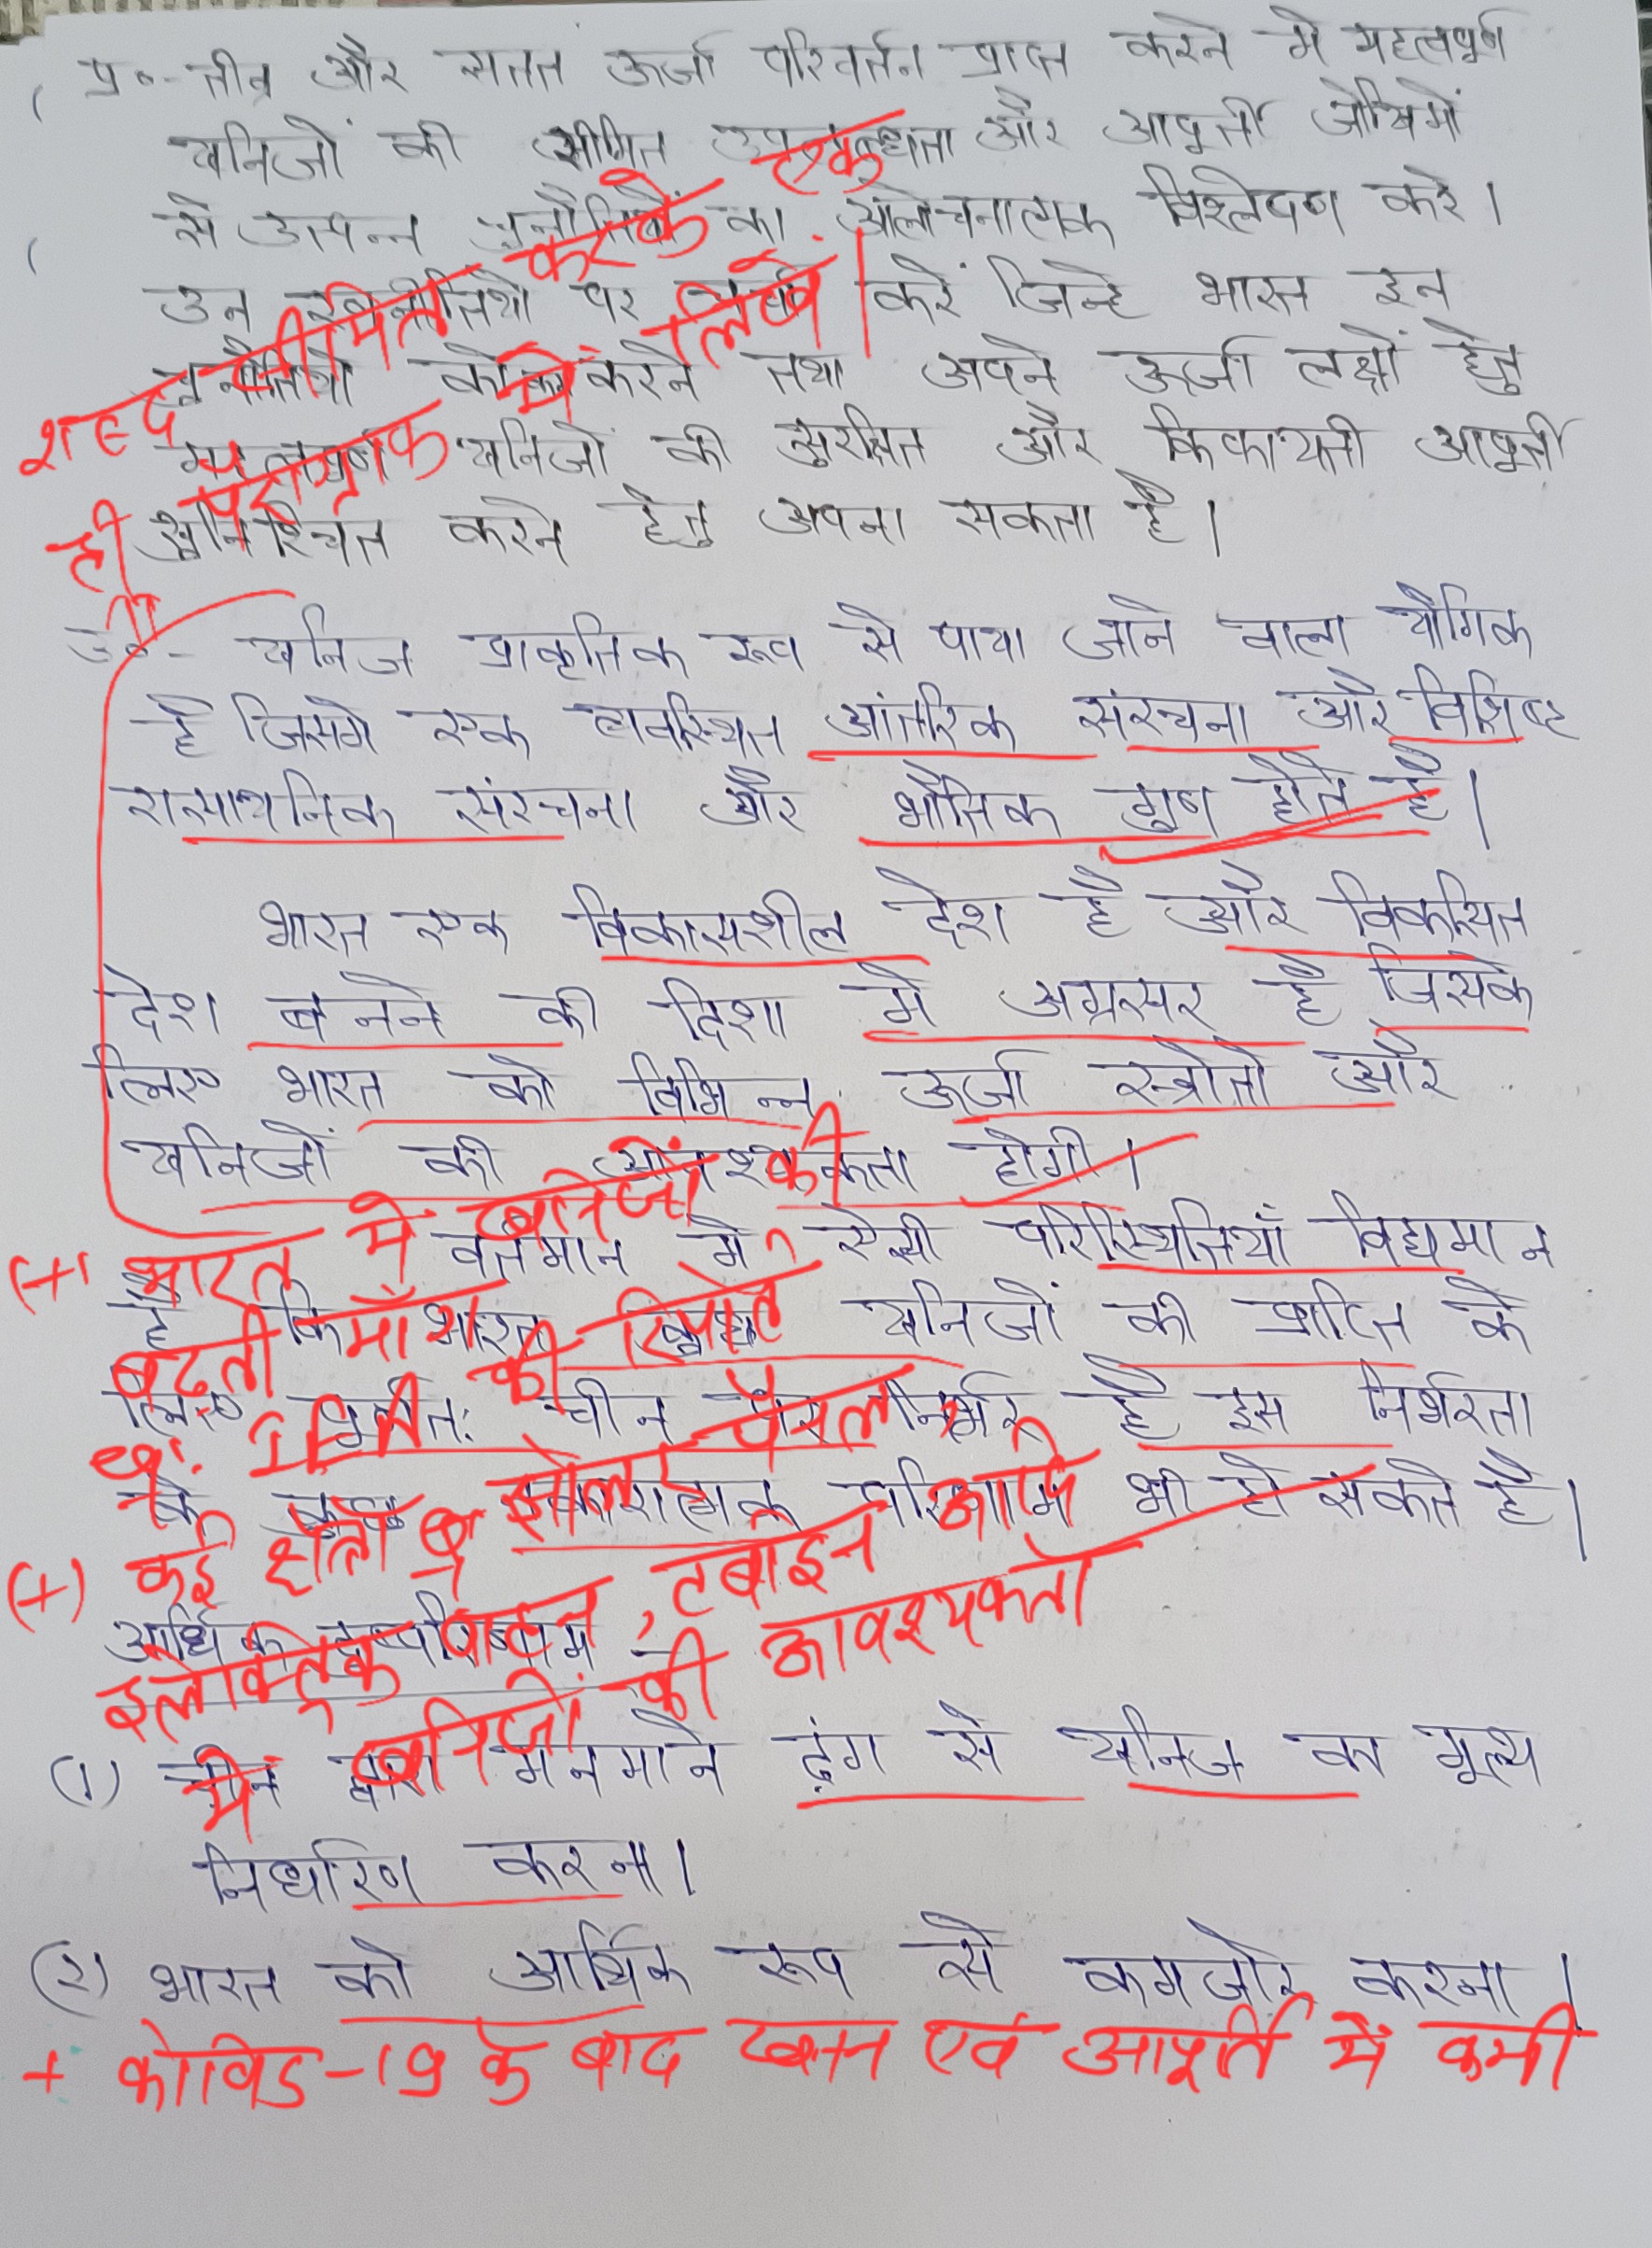 प्र०- तीव्र और सतत ऊर्जा परिवर्तन प्राप्त करने मे महत्वपूर्ण
खनिजों की सीमित उपलब्धता और आपूर्ती जोखिमों
से उत्पन्न चुनौतियों का आलोचनात्मक विश्लेषण करे।
उन रणनीतियों पर चर्चा करें जिन्हे भारत इन
चुनौतियों को कम करने तथा अपने ऊर्जा लक्षों हेतु
महत्वपूर्ण खनिजों की सुरक्षित और किफायती आपूर्ती
सुनिश्चित करने हेतु अपना सकता है।
शब्द सीमित करके एक
ही पैराग्राफ में लिखें।
उ०- खनिज प्राकृतिक रूप से पाया जाने वाला यौगिक
है जिसमे एक व्यवस्थित आंतरिक संरचना और विशिष्ट
रासायनिक संरचना और भौतिक गुण होते है।
भारत एक विकासशील देश है और विकसित
देश बनने की दिशा मे अग्रसर है जिसके
लिए भारत को विभिन्न ऊर्जा स्त्रोतो और
खनिजों की आवश्यकता होगी।
वर्तमान मे ऐसी परिस्थितियाँ विद्यमान
है कि भारत कुछ खनिजों की प्राप्ति के
लिए पूर्णतः चीन पर निर्भर है इस निर्भरता
के कुछ नकारात्मक परिणाम भी हो सकते है।
(+) भारत में खनिजों की
बढ़ती माँग की स्थिति
(+) कई क्षेत्रों में सोलर पैनल,
इलेक्ट्रिक वाहन, टर्बाइन आदि
में खनिजों की आवश्यकता
आर्थिक दुष्परिणाम
(1) चीन द्वारा मनमाने ढ़ंग से खनिज का मूल्य
निर्धारण करना।
(2) भारत को आर्थिक रूप से कमजोर करना।
+ कोविड-19 के बाद खनन एवं आपूर्ति में कमी